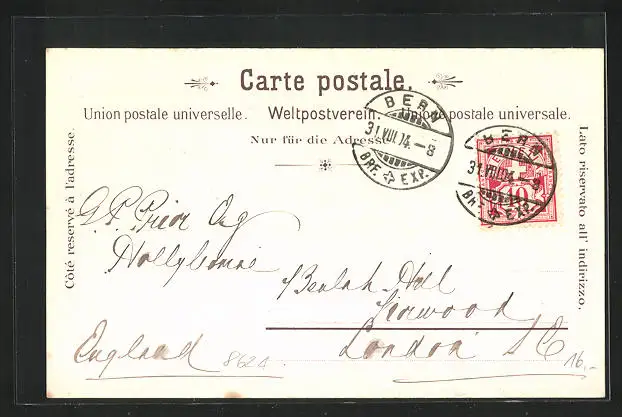 Carte postale.
Union postale universelle. Weltpostverein. Unione postale universale.
Nur für die Adresse.
Côté reservé à l'adresse.
Lato riservato all' indirizzo.
BERN
31.VIII.04. - 8
BRF. EXP.
BERN
31.VIII.04. - 8
BRF. EXP.
10
G. P. Prior Esq
Hollybourne
Beulah Hill
Norwood
London S E
England
862a
16.-